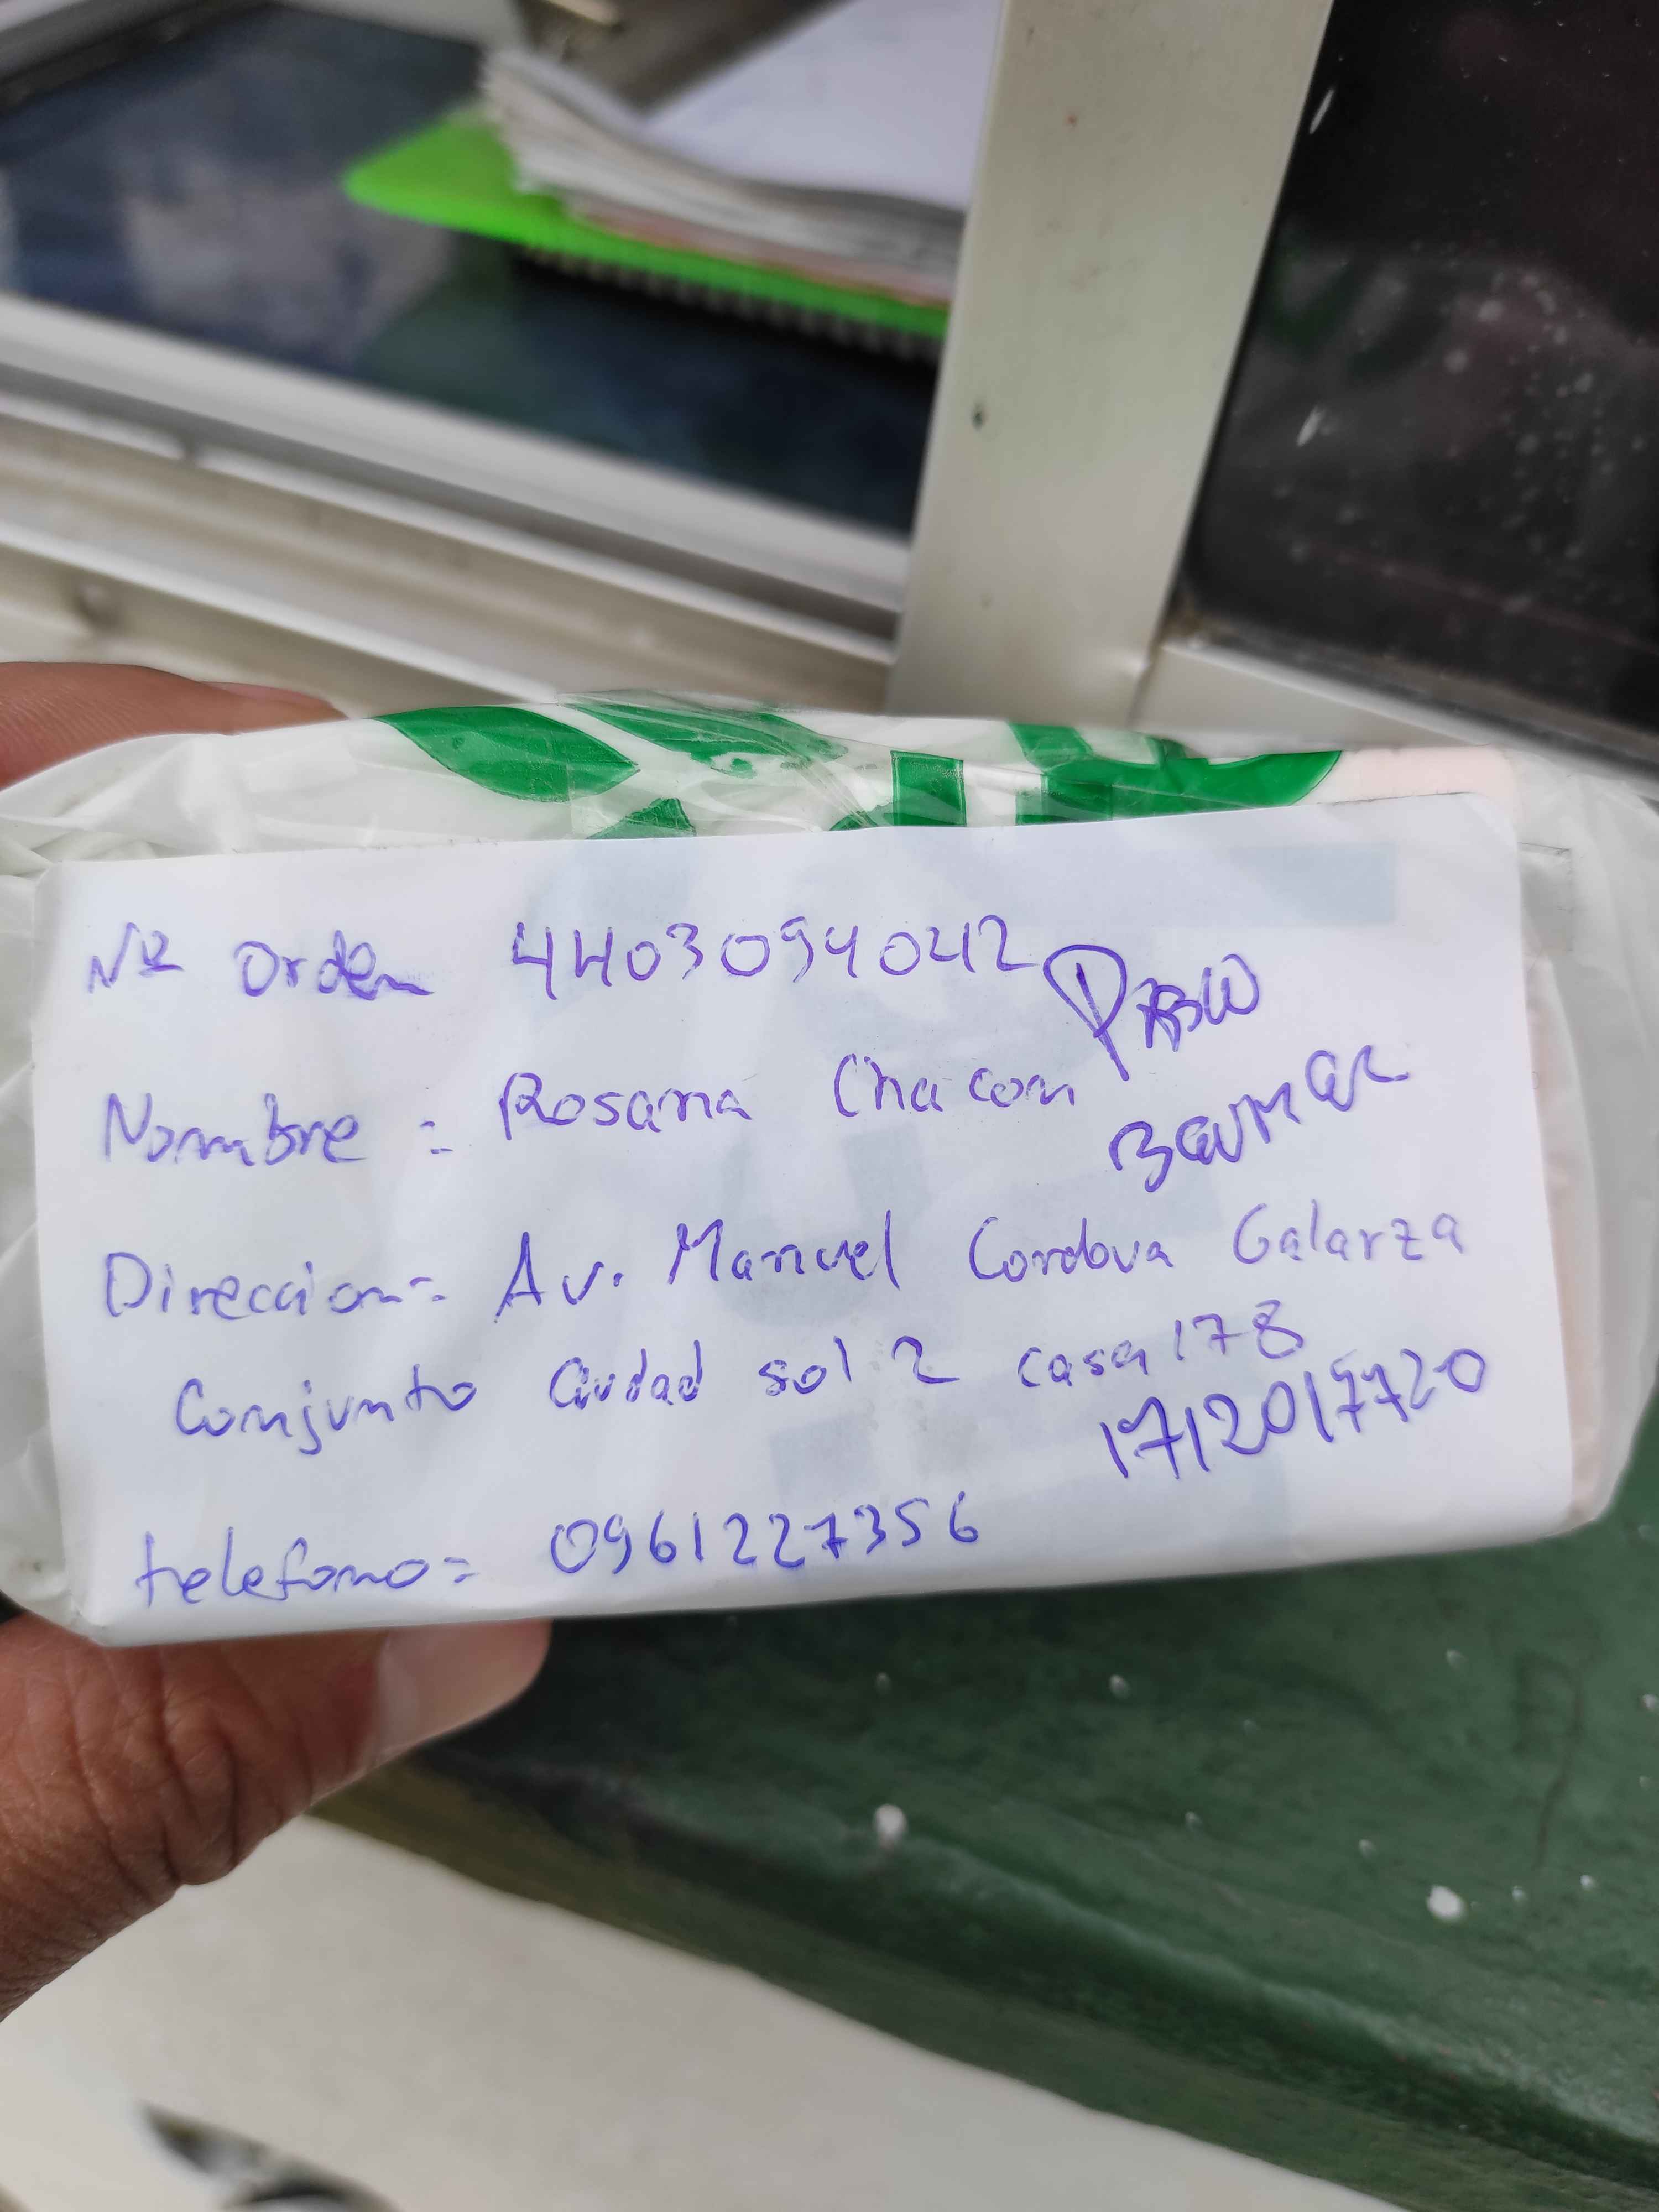 Nº Orden 4403094042
PABLO
Nombre = Rosana Chacon
Direccion = Av. Manuel Cordova Galarza
Conjunto Ciudad sol 2 casa 178
1712017720
telefono = 0961227356